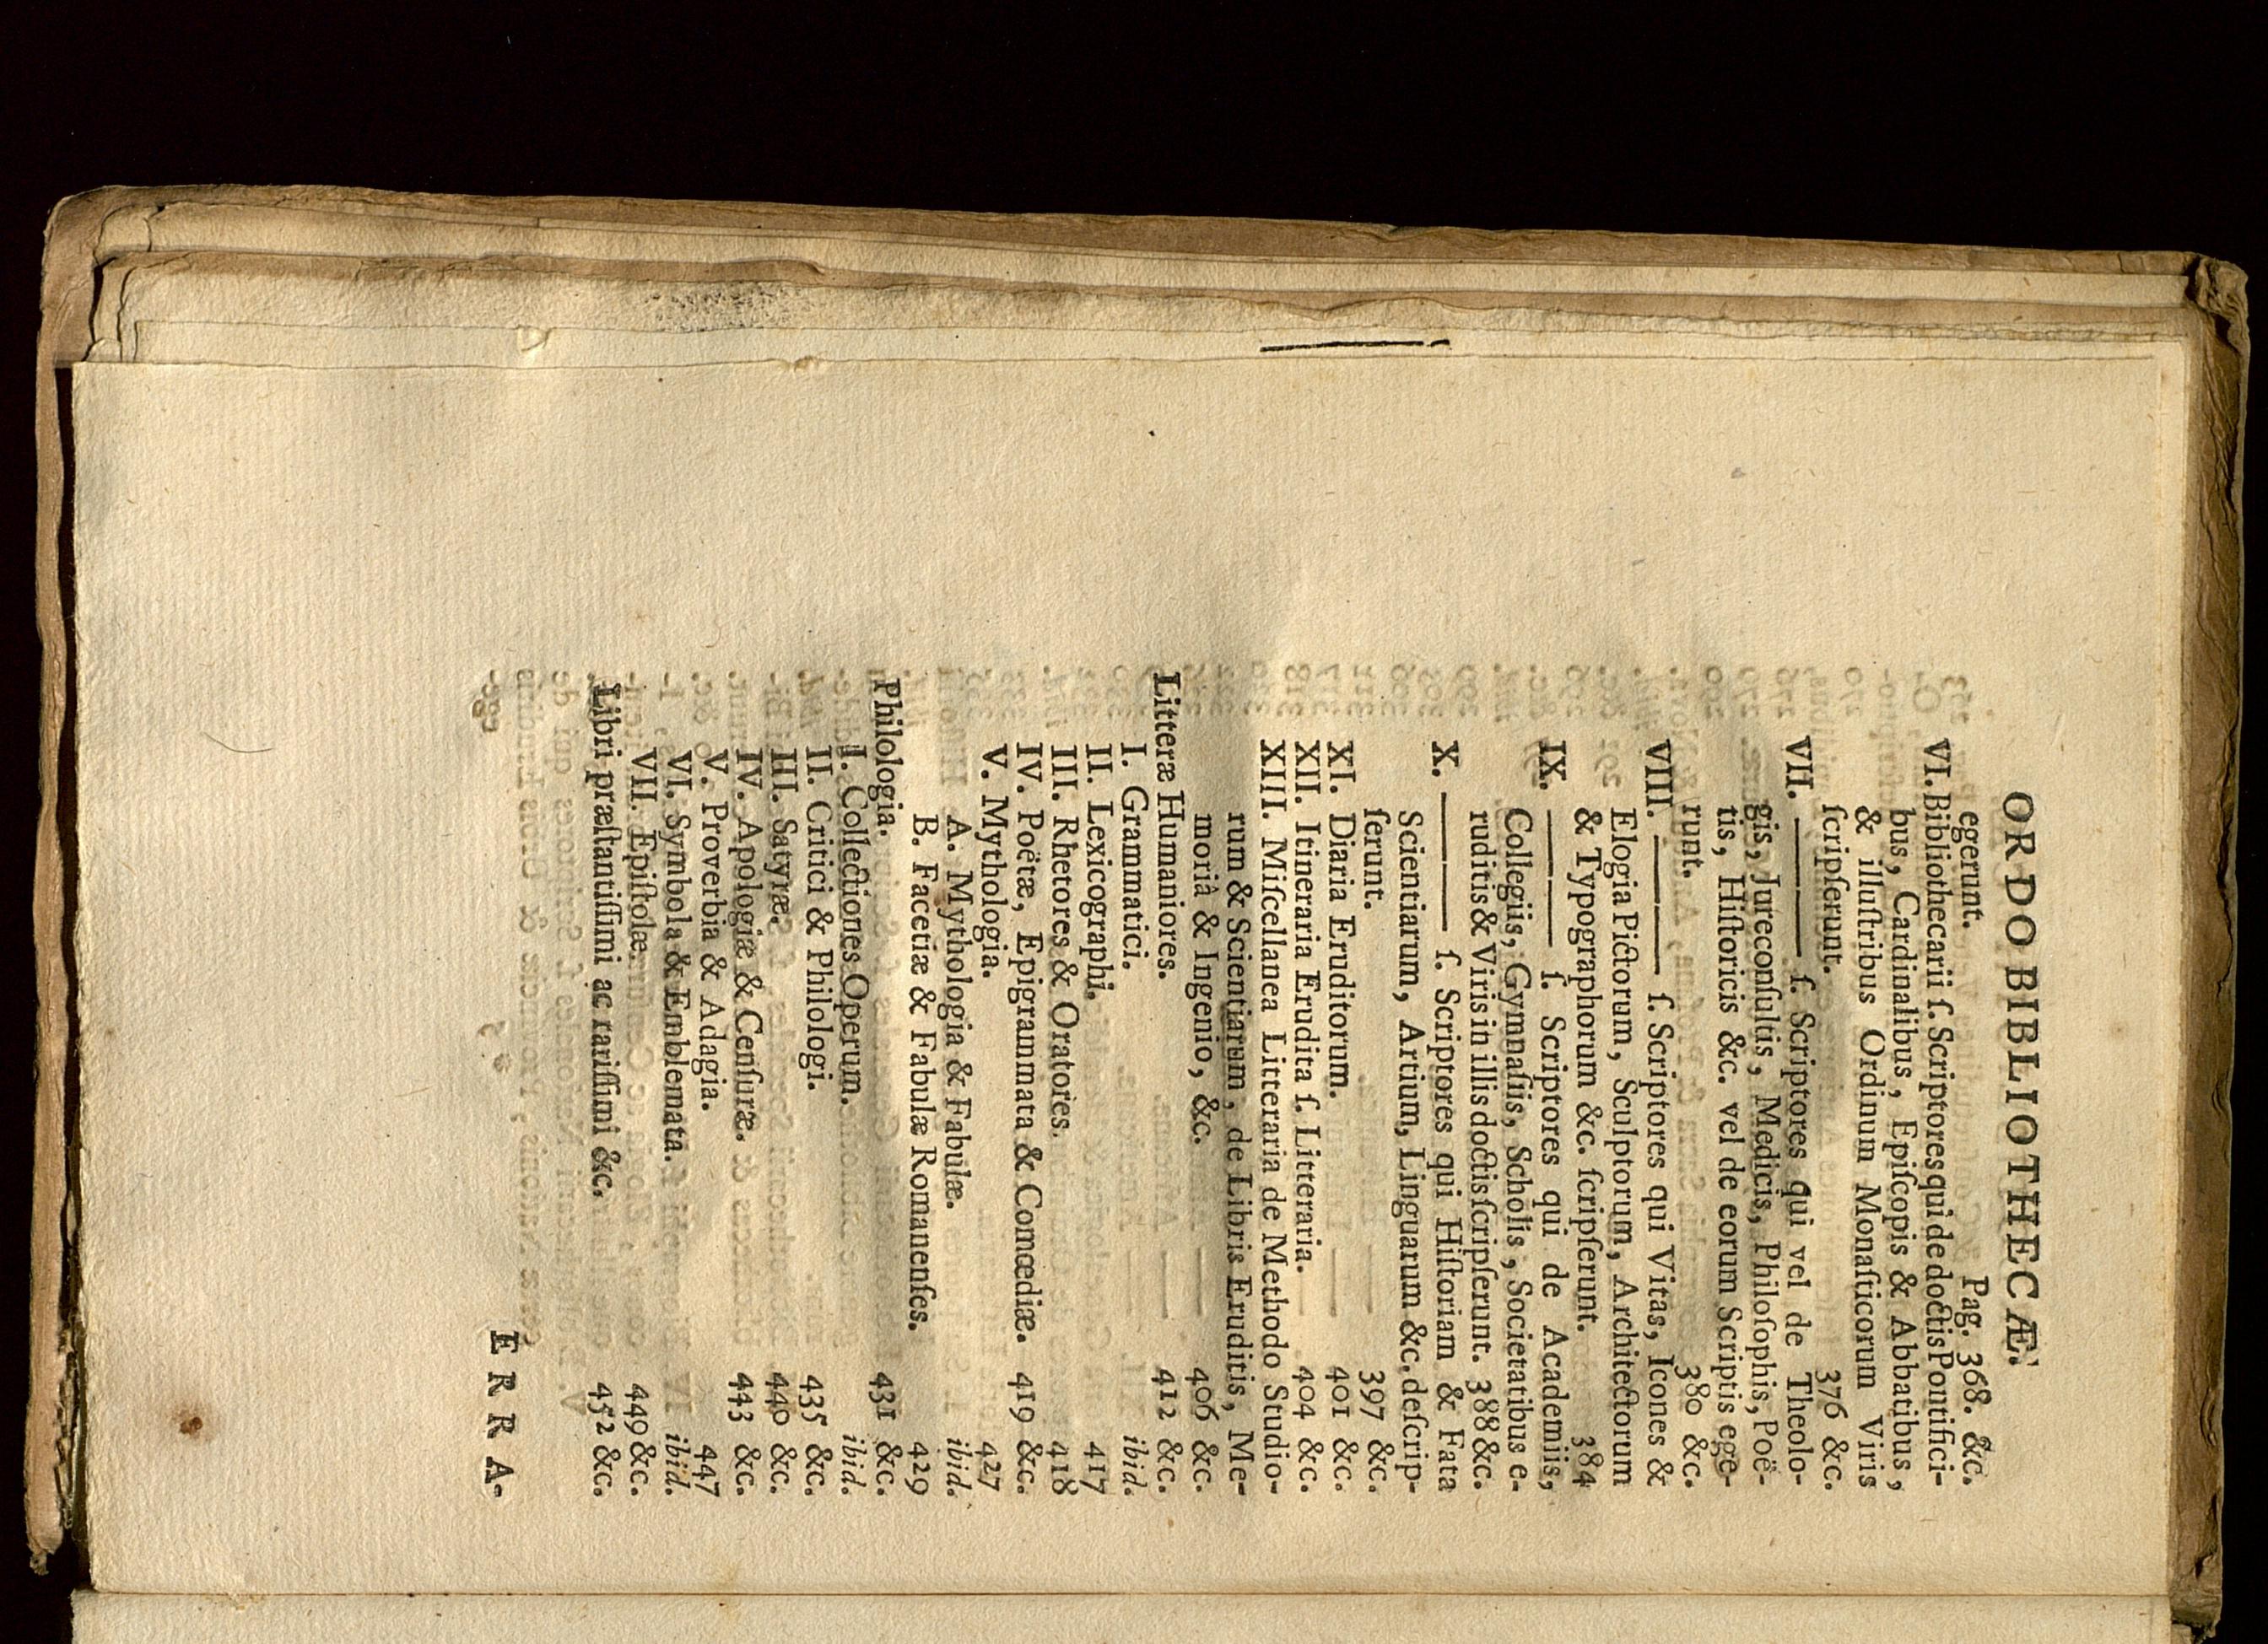 ORDO BIBLIOTHECÆ.
egerunt. Pag. 368. &c.
VI. Bibliothecarii ſ. Scriptores qui de doctis Pontifici-
bus, Cardinalibus, Epiſcopis & Abbatibus,
& illuſtribus Ordinum Monaſticorum Viris
ſcripſerunt. 376 &c.
VII. ——— ſ. Scriptores qui vel de Theolo-
gis, Jureconſultis, Medicis, Philoſophis, Poë-
tis, Hiſtoricis &c. vel de eorum Scriptis ege-
runt. 380 &c.
VIII. ——— ſ. Scriptores qui Vitas, Icones &
Elogia Pictorum, Sculptorum, Architectorum
& Typographorum &c. ſcripſerunt. 384
IX. ——— ſ. Scriptores qui de Academiis,
Collegiis, Gymnaſiis, Scholis, Societatibus e-
ruditis & Viris in illis doctis ſcripſerunt. 388 &c.
X. ——— ſ. Scriptores qui Hiſtoriam & Fata
Scientiarum, Artium, Linguarum &c. deſcrip-
ſerunt. 397 &c.
XI. Diaria Eruditorum. 401 &c.
XII. Itineraria Erudita ſ. Litteraria. 404 &c.
XIII. Miſcellanea Litteraria de Methodo Studio-
rum & Scientiarum, de Libris Eruditis, Me-
morià & Ingenio, &c. 406 &c.
Litteræ Humaniores. 412 &c.
I. Grammatici. ibid.
II. Lexicographi. 417
III. Rhetores & Oratores. 418
IV. Poëtæ, Epigrammata & Comœdiæ. 419 &c.
V. Mythologia. 427
A. Mythologia & Fabulæ. ibid.
B. Facetiæ & Fabulæ Romanenſes. 429
Philologia. 431 &c.
I. Collectiones Operum. ibid.
II. Critici & Philologi. 435 &c.
III. Satyræ. 440 &c.
IV. Apologiæ & Cenſuræ. 443 &c.
V. Proverbia & Adagia. 447
VI. Symbola & Emblemata. ibid.
VII. Epiſtolæ. 449 &c.
Libri præſtantiſſimi ac rariſſimi &c. 452 &c.
ERRA-